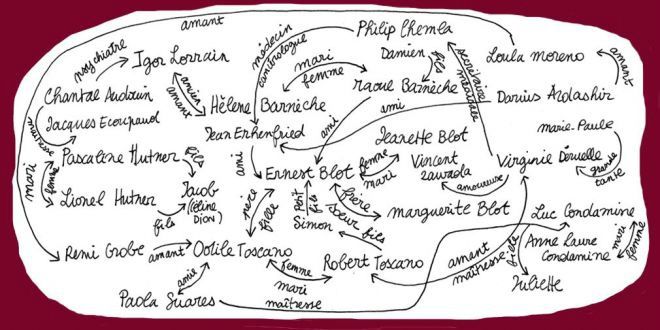 amant
Philip Chemla
psychiatre
Igor Lorrain
médecin
cancérologue
Damien
fils
secrétaire
médicale
Loula Moreno
amant
mari
femme
Raoul Barnèche
Chantal Audouin
ancien
amant
Hélène Barnèche
ami
Darius Ardashir
maîtresse
Jacques Ecoupaud
Jean Ehrenfried
ami
Jeanette Blot
marie-Paule
Pascaline Hutner
fils
ami
femme
mari
Vincent
Zawada
Virginie Déruelle
grande
tante
mari
femme
Ernest Blot
amoureuse
Lionel Hutner
Jacob
(Céline
Dion)
fils
père
fille
Petit
fils
frère
sœur
marguerite Blot
Luc Condamine
Simon
fils
Remi Grobe
amant
Odile Toscano
Robert Toscano
amant
maîtresse
fille
Anne Laure
Condamine
mari
femme
amie
femme
mari
Juliette
Paola Suares
maîtresse